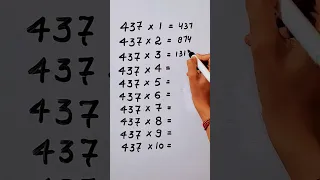 437 × 1 = 437
437 × 2 = 874
437 × 3 = 131
437 × 4 =
437 × 5 =
437 × 6 =
437 × 7 =
437 × 8 =
437 × 9 =
437 × 10 =